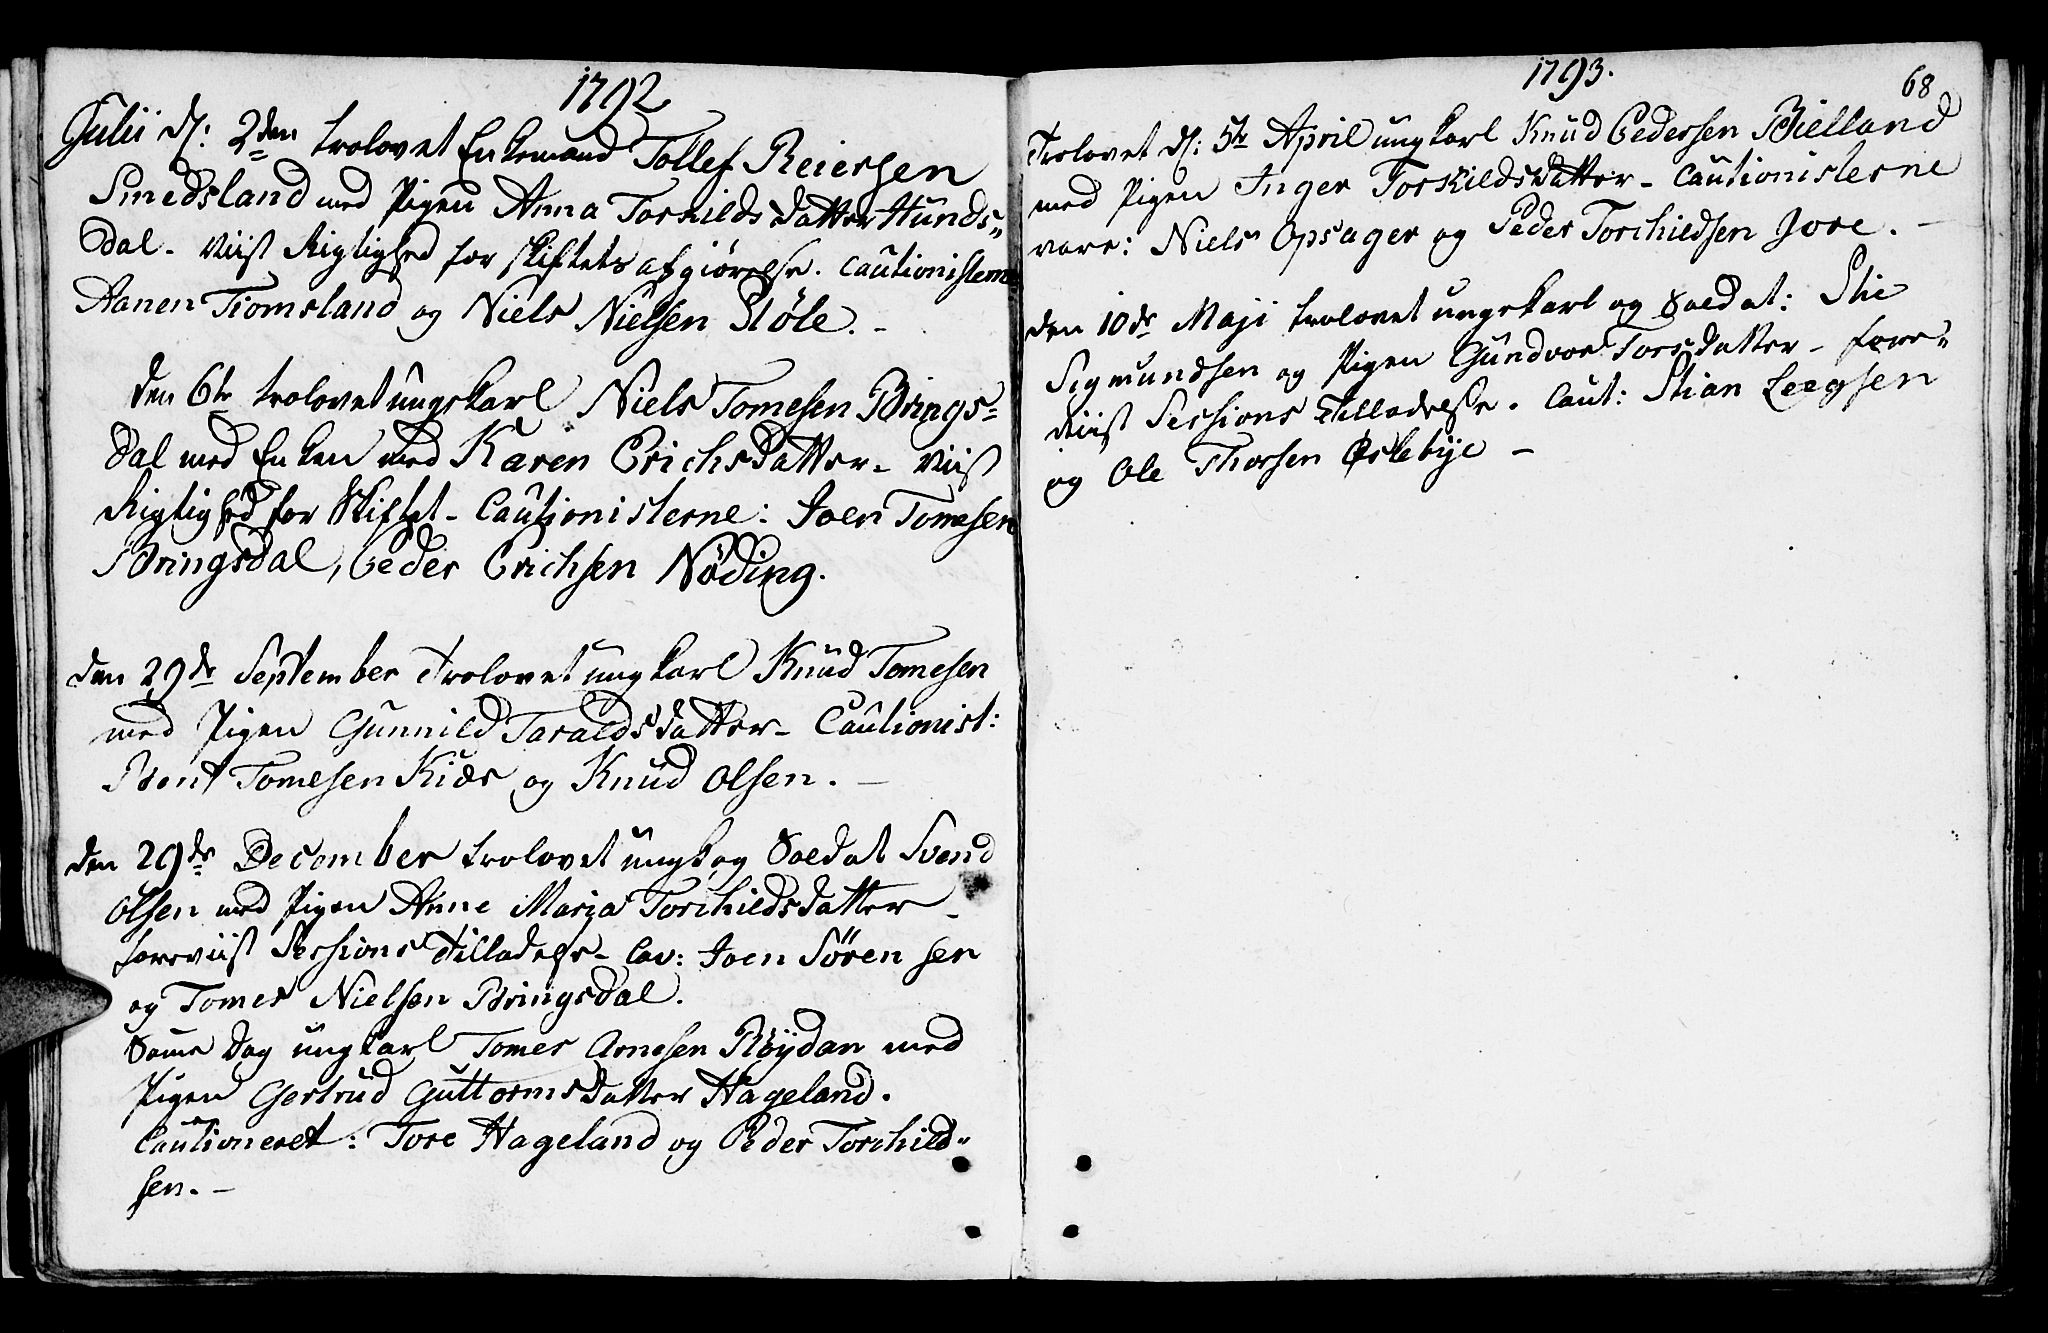 1792
Julii d: 2den trolovet Enkemand Tollef Reiersen
Smedsland med Pigen Anna Torkildsdatter Hunds„
dal. viist Rigtighed for skiftets afgiörelse. Cautionisterne
Aanen Tiomsland og Niels Nielsen Støle. -
den 6te trolovet ungekarl Niels Tomesen Brings=
dal med Enken med Karen Erichsdatter - viist
Rigtighed for Skiftet - Cautionisterne: Joen Tomesen
Bringsdal, Peder Erichsen Nøding.
den 29de September Trolovet ungkarl Knud Tomesen
med Pigen Gunnild Taraldsdatter - Cautionist:
Bent Tomesen Kiær og Knud Olsen. -
den 29de December trolovet ungk og Soldat Svend
Olsen med Pigen Anne Marja Torchildsdatter -
foreviist Sessions Tilladelse - Cav: Joen Sörensen
og Tomes Nielsen Bringsdal.
Same Dag ungkarl Tomes Arnesen Röÿdan med
Pigen Gertrud Guttormsdatter Hageland.
Cautioneret: Tore Hageland og Peder Torchild„
sen. -
1793.
68
Trolovet d: 5te April ungkarl Knud Pedersen Bielland
med Pigen Inger Torkildsdatter - Cautionisterne
vare: Niels Opsager og Peder Torchildsen Jore. -
den 10de Maji trolovet ungekarl og Soldat: Stie
Sigmundsen og Pigen Gundvor Torsdatter - fore„
viist Sessions Tilladelse. Caut: Stian Legsen
og Ole Thorsen Øslebye -